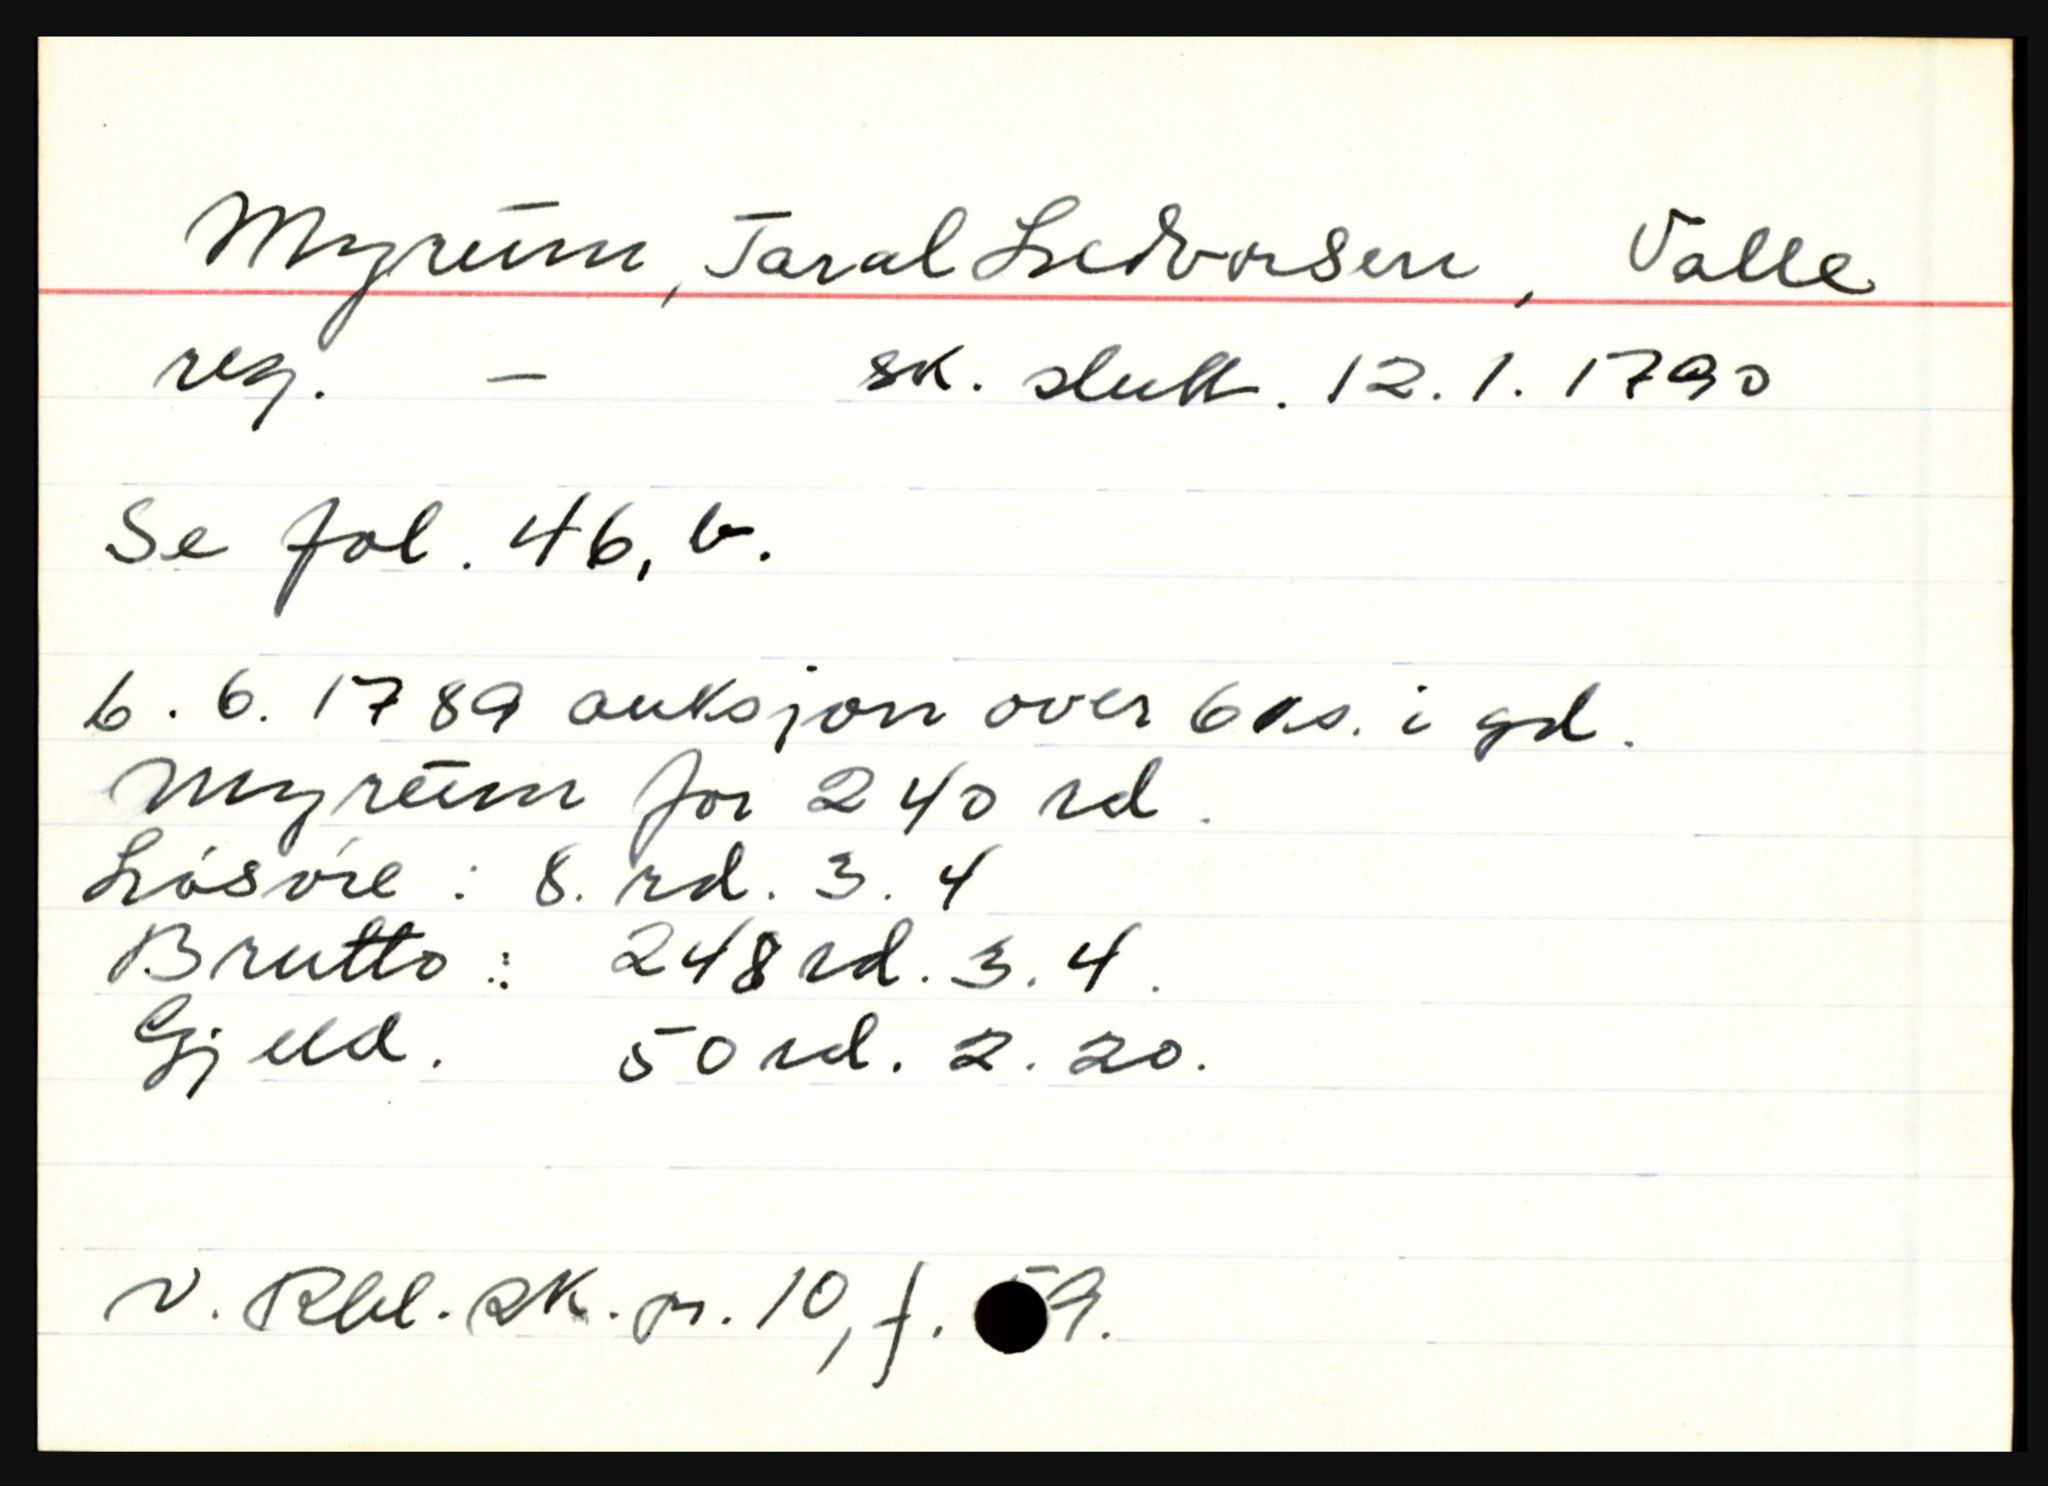 Myreūm, Taral Ledvorsen, Valle
reg. – sk. slutt. 12.1.1790
Se fol. 46, b.
6.6.1789 auksjon over 6 ks. i gd.
Myreūm for 240 rd.
Lósóre: 8. rd. 3. 4
Brutto: 248 rd. 3. 4.
Gjeld. 50 rd. 2. 20.
v. Rbl. sk. pr. 10, f. 59.